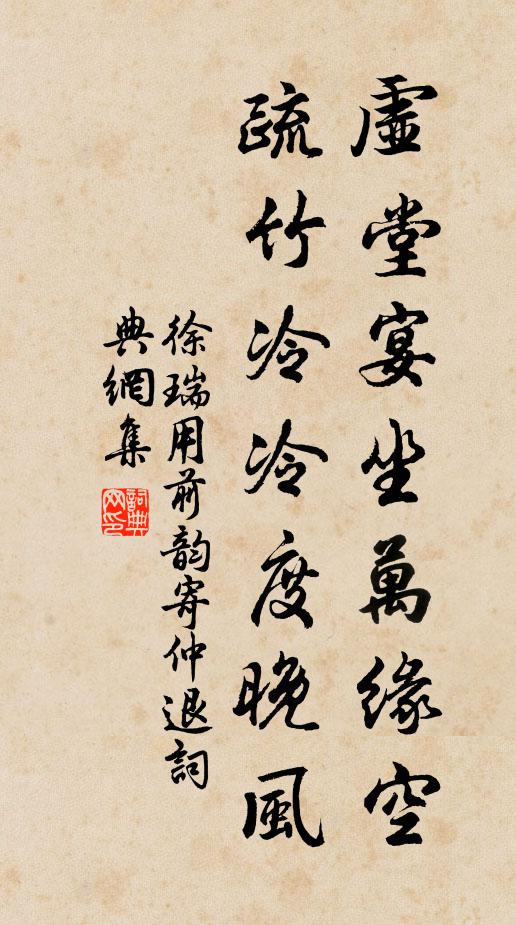 虛堂宴坐萬緣空
疏竹冷冷度晚風
徐瑞用前韵寄仲退詞
典網集
詞典網印